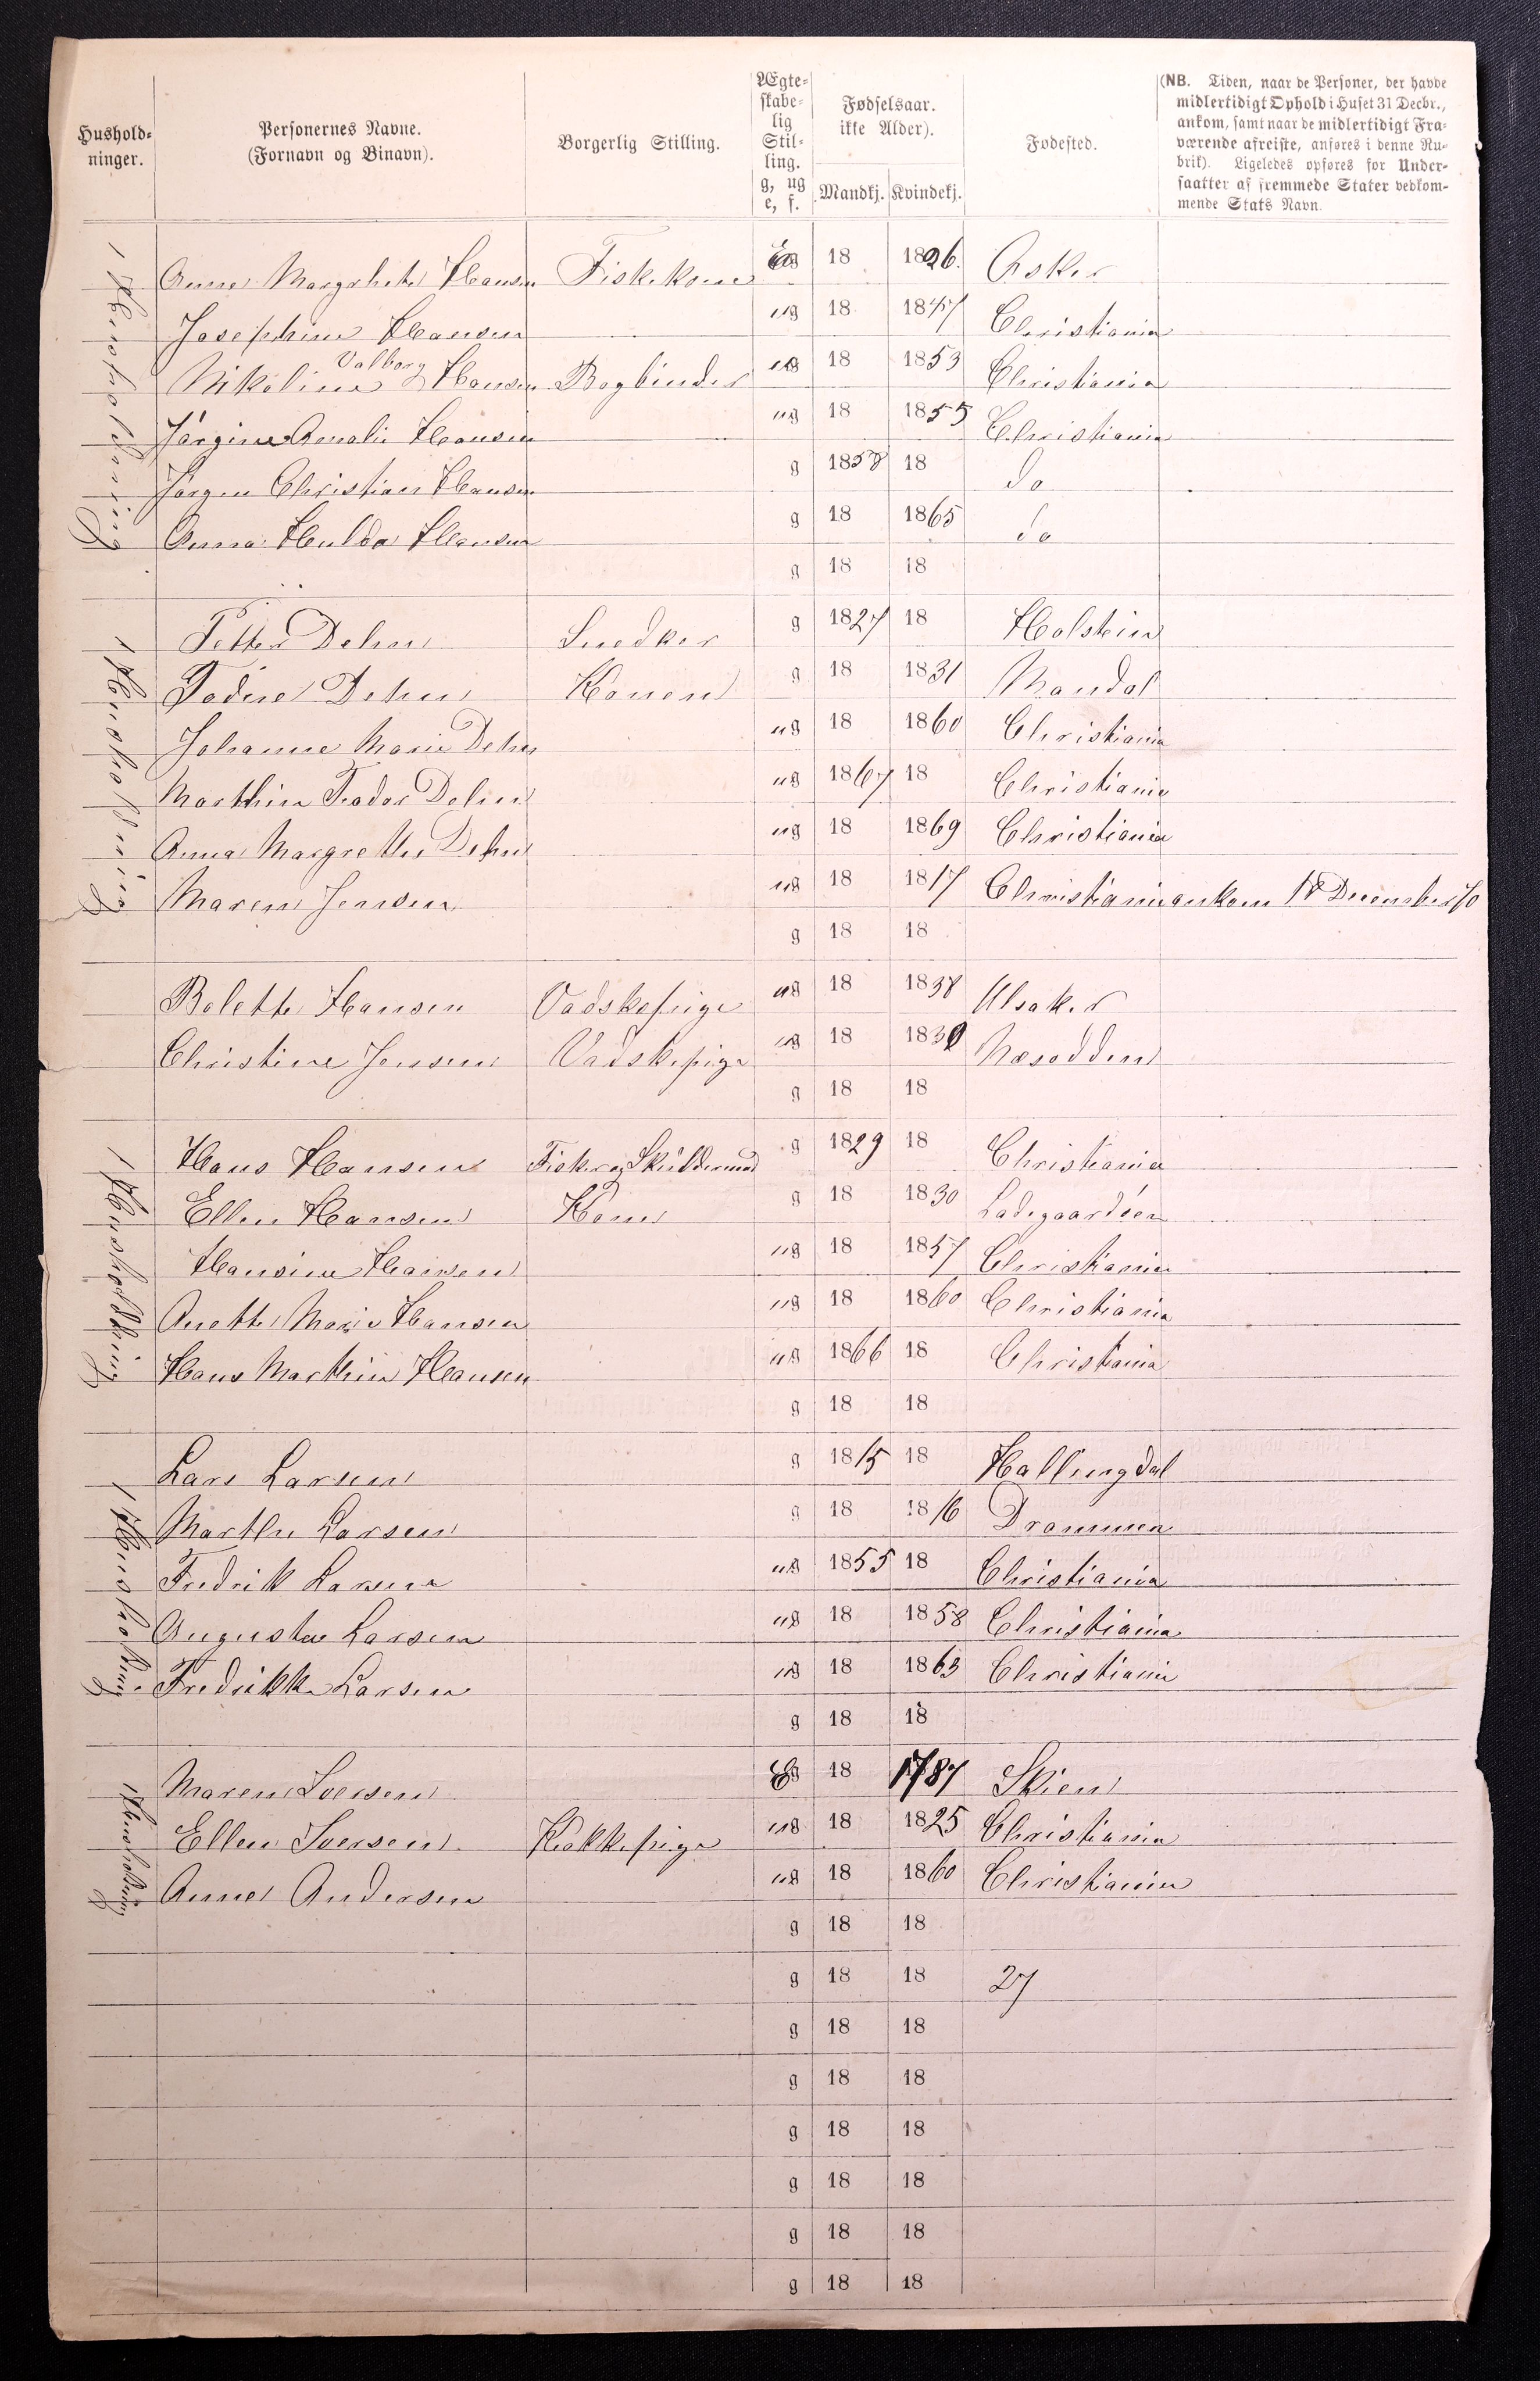 Hushold-
ninger.
Personernes Navne.
(Fornavn og Binavn).
Borgerlig Stilling.
Ægte-
skabe-
lig
Stil-
ling.
g, ug
e, f.
Fødselsaar.
ikke Alder).
Mandkj. Kvindekj.
Fødested.
(NB. Tiden, naar de Personer, der havde
midlertidigt Ophold i Huset 31 Decbr.,
ankom, samt naar de midlertidigt Fra-
værende afreiste, anføres i denne Ru-
brik). Ligeledes opføres for Under-
saatter af fremmede Stater vedkom-
mende Stats Navn.
1 Husholdning
Anne Margrhete Hansen Fiskekone E g 18 1826. Asker
Josephine Hansen ug 18 1847 Christiania
Nikoline Valborg Hansen Bogbinder ug 18 1853 Christiania
Jörgine Amalie Hansen ug 18 1855 Christiania
Jörgen Christian Hansen g 1858 18 do
Anna Hulda Hansen g 18 1865 do
g 18 18
1 Husholdning
Petter Dehn Snedker g 1827 18 Holstein
Todine Dehn Konen g 18 1831 Mandal
Johanne Marie Dehn ug 18 1860 Christiania
Marthin Teodor Dehn ug 1867 18 Christiania
Anna Margrethe Dehn ug 18 1869 Christiania
Maren Jensen ug 18 1817 Christiania ankom 18 December 70
g 18 18
Bolette Hansen Vadskepige ug 18 1838 Ulsaker
Christine Jensen Vadskepige ug 18 1839 Næsodden
g 18 18
1 Husholdning
Hans Hansen Fisker og Skildermand g 1829 18 Christiania
Ellen Hansen Kone g 18 1830 Ladegaardsöen
Hansine Hansen ug 18 1857 Christiania
Anette Marie Hansen ug 18 1860 Christiania
Hans Marthin Hansen ug 1866 18 Christiania
g 18 18
1 Husholdning
Lars Larsen g 1815 18 Hallingdal
Marthe Larsen g 18 1816 Drammen
Fredrik Larsen ug 1855 18 Christiania
Augusta Larsen ug 18 1858 Christiania
Fredrikke Larsen ug 18 1863 Christiania
g 18 18
1 Husholdning
Maren Iversen E g 18 1787 Skien
Ellen Iversen Kokkepige ug 18 1825 Christiania
Anne Andersen ug 18 1860 Christiania
g 18 18
g 18 18 27
g 18 18
g 18 18
g 18 18
g 18 18
g 18 18
g 18 18